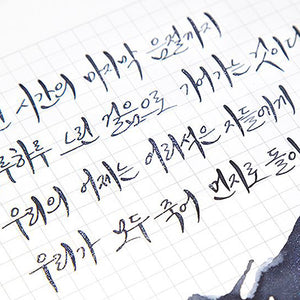 시간의 마지막 음절까지
느린 걸음으로 기어가는 것이다
우리의 어제는 어리석은 자들에게
우리가 모두 죽어 먼지로